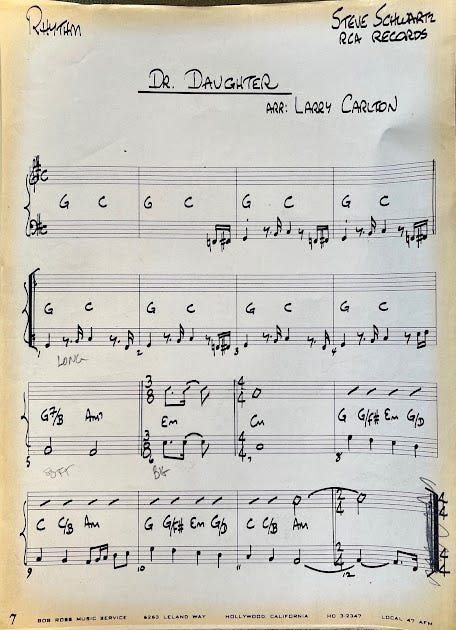 RHYTHM
STEVE SCHWARTZ
RCA RECORDS
DR. DAUGHTER
ARR: LARRY CARLTON
C
G C G C G C G C
C
G C G C G C G C
1 2 3 4
LONG
3 8 4 4
G7/B Am7 Em Cm G G/F# Em G/D
3 8 4 4
5 6 7 8
SOFT BIG
2 4 4 4
C C/B Am G G/F# Em G/D C C/B Am
2 4 4 4
9 10 11 12
7 BOB ROSS MUSIC SERVICE 6263 LELAND WAY HOLLYWOOD, CALIFORNIA HO 3-2347 LOCAL 47 AFM